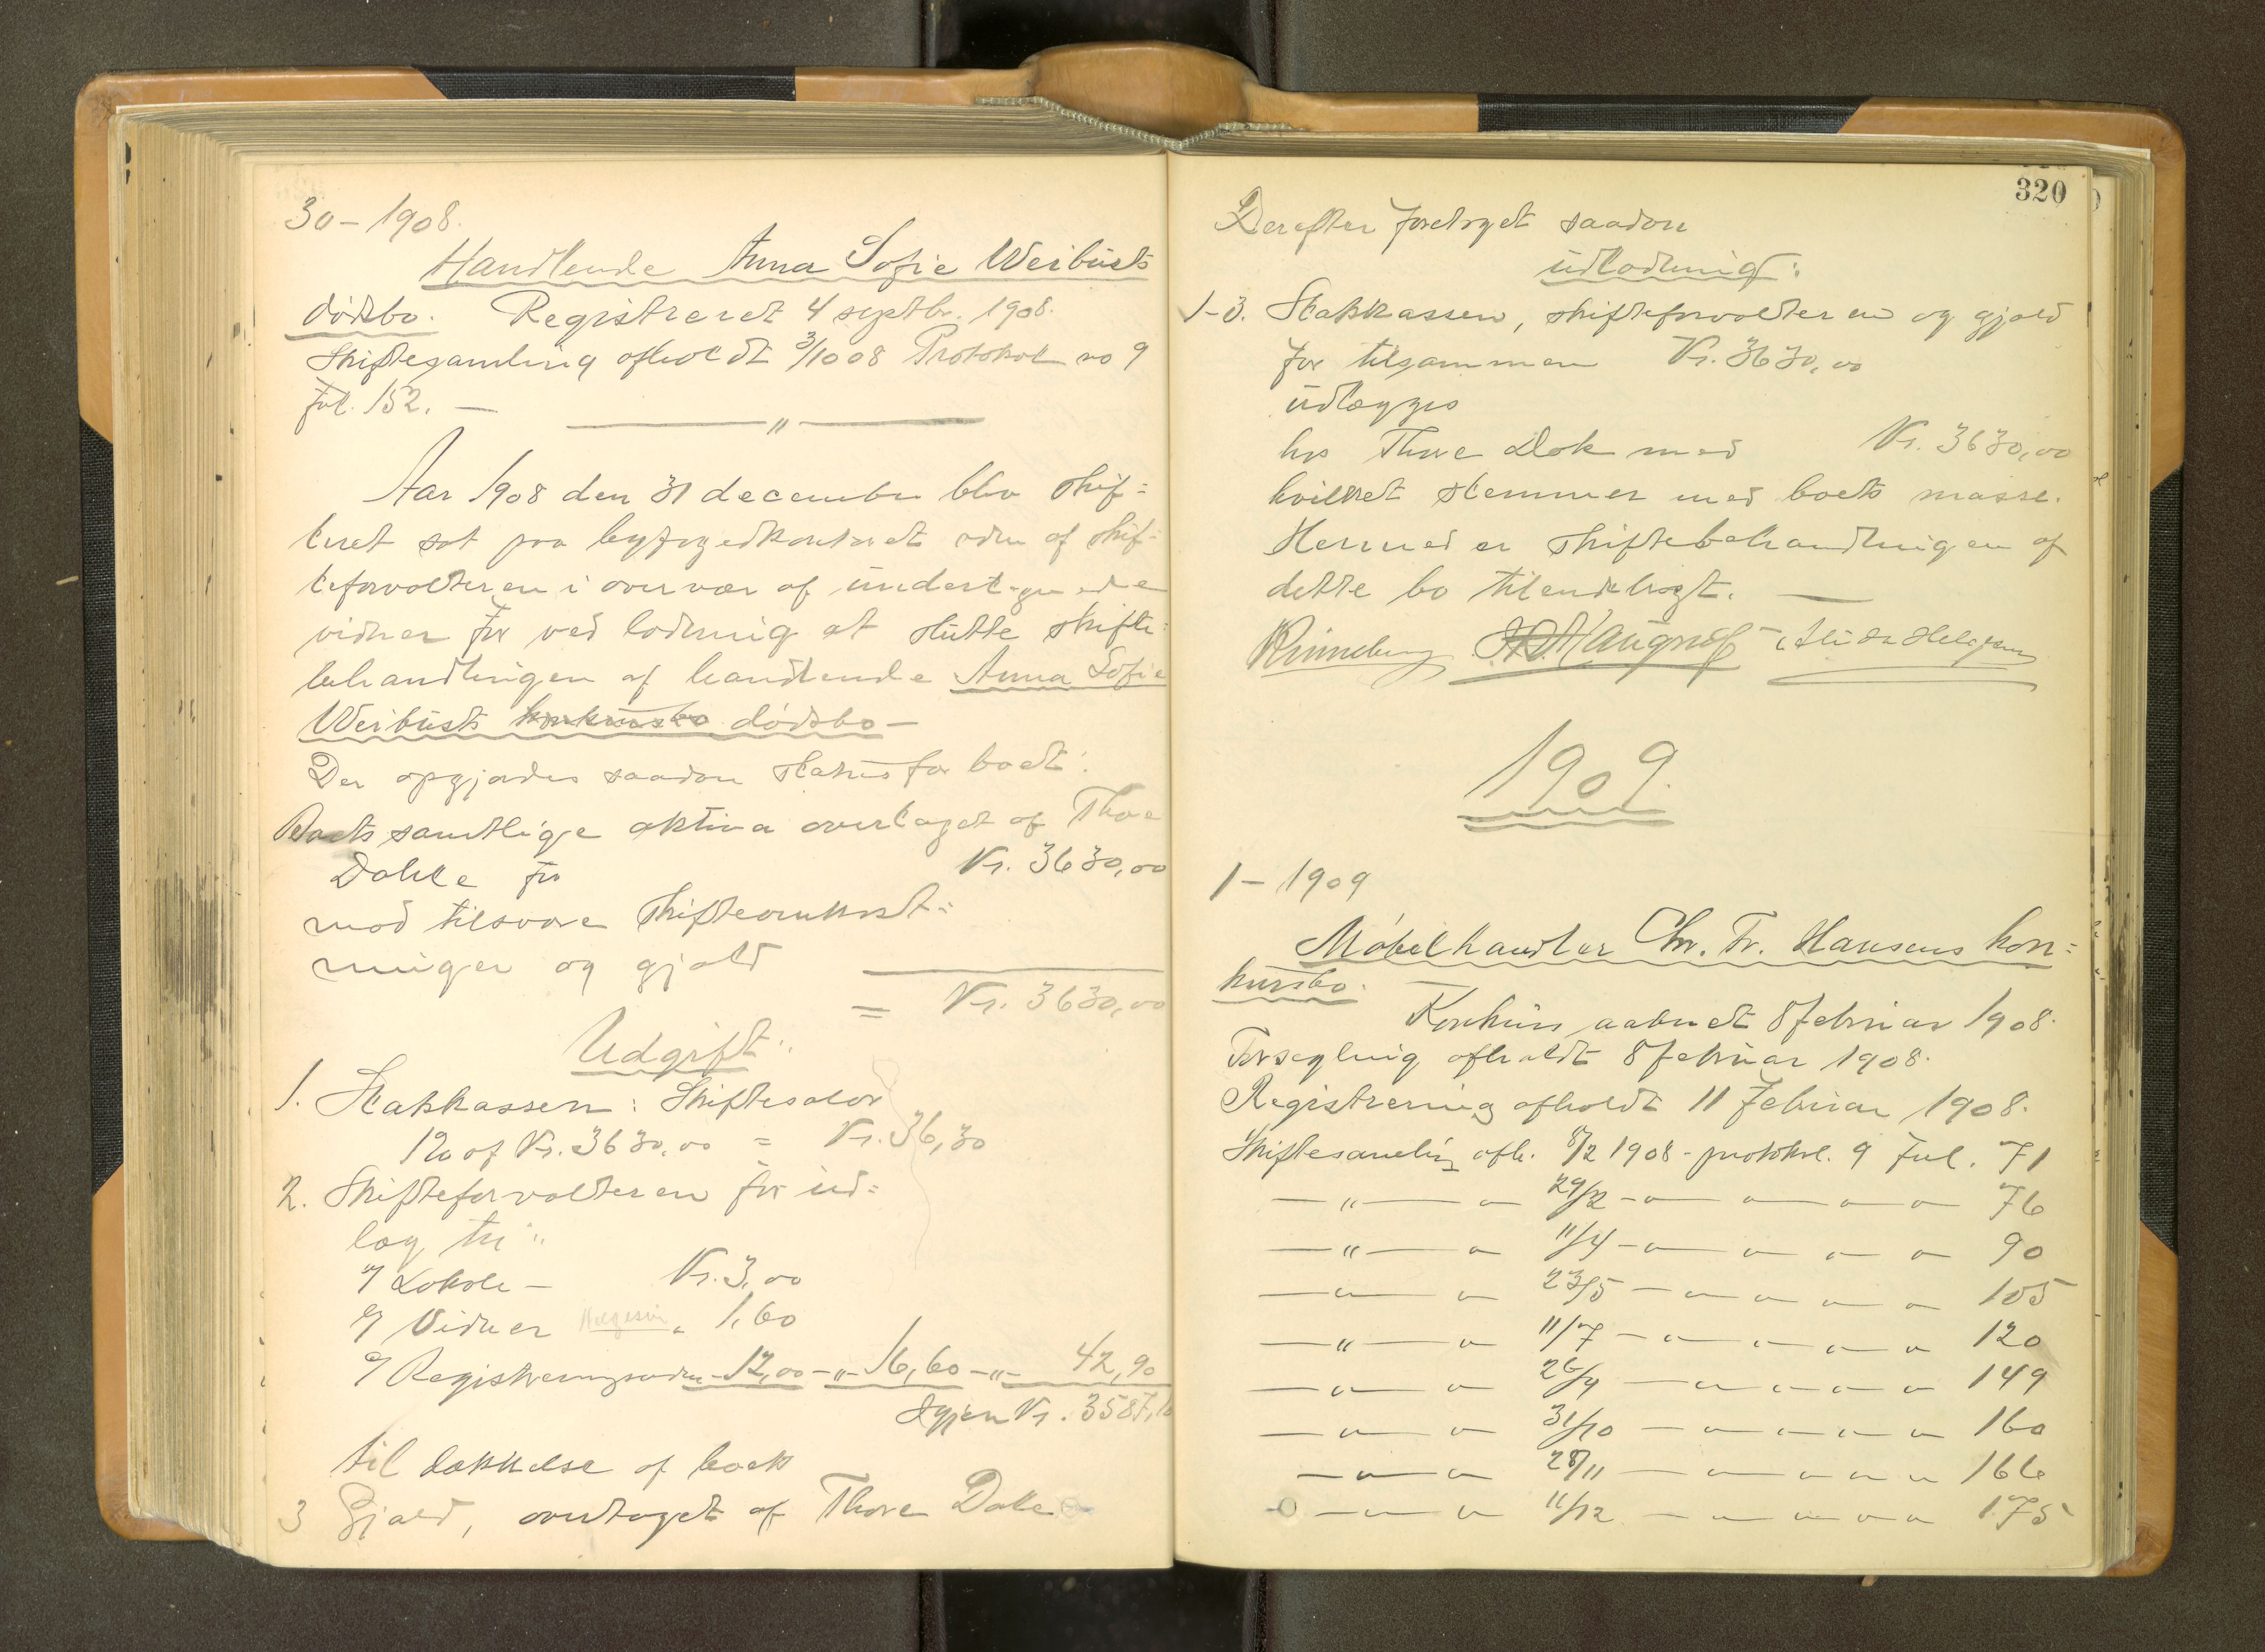 30-1908.
Handlende Anna Sofie Weibusts
dødsbo. Registreret 4 septbr. 1908.
Skiftesamling afholdt 3/10 08 Protokol no 9
Fol. 152. —
— " —
Aar 1908 den 31 december blev skif=
teret sat paa byfogedkontoret adm af skif=
teforvalteren i overvær af undertegnede
vidner for ved lodning at slutte skifte=
behandlingen af handlende Anna Sofie
Weibusts konkursbo dødsbo —
Der opgjordes saadan status for boet:
Boets samtlige aktiva overtaget af Thore
Dakke for Kr. 3630,00
mod tilsvare skifteomkost=
ninger og gjæld
= Kr. 3630,00
Udgift:
1. Statskassen: Skiftesalær
1% af Kr. 3630,00 = Kr. 36,30
2. Skifteforvalteren for ud=
læg til:
a/ Lokale — Kr. 3,00
b/ Vidner Helgesen " 1,60
c/ Registreringsadm - 12,00 - " - 16,60 - " - 42,90
Igjen Kr. 3587,10
til dækkelse af boets
3 Gjæld, overtaget af Thore Dakke
320
Derefter foretoget saadan
udlodning:
1-3. Statskassen, skifteforvalteren og gjæld
for tilsammen Kr. 3630,00
udlægges
hos Thore Dak med Kr. 3630,00
hvilket stemmer med boets masse.
Hermed er skiftebehandlingen af
dette bo tilendebragt. —
Rinneberg
1909.
1-1909
Møbelhandler Chr. Fr. Hansens kon=
kursbo. —
Konkurs aabnet 8 februar 1908.
Forsegling afholdt 8 februar 1908.
Registrering afholdt 11 Februar 1908.
Skiftesamling afh. 8/2 1908 - protokol. 9 Fol. 71
— " — " 29/2 — " — " — " — " 76
— " — " 11/4 — " — " — " — " 90
— " — " 23/5 — " — " — " — " 105
— " — " 11/7 — " — " — " — " 120
— " — " 26/9 — " — " — " — " 149
— " — " 31/10 — " — " — " — " 160
— " — " 28/11 — " — " — " — " 166
— " — " 11/12 — " — " — " — " 175